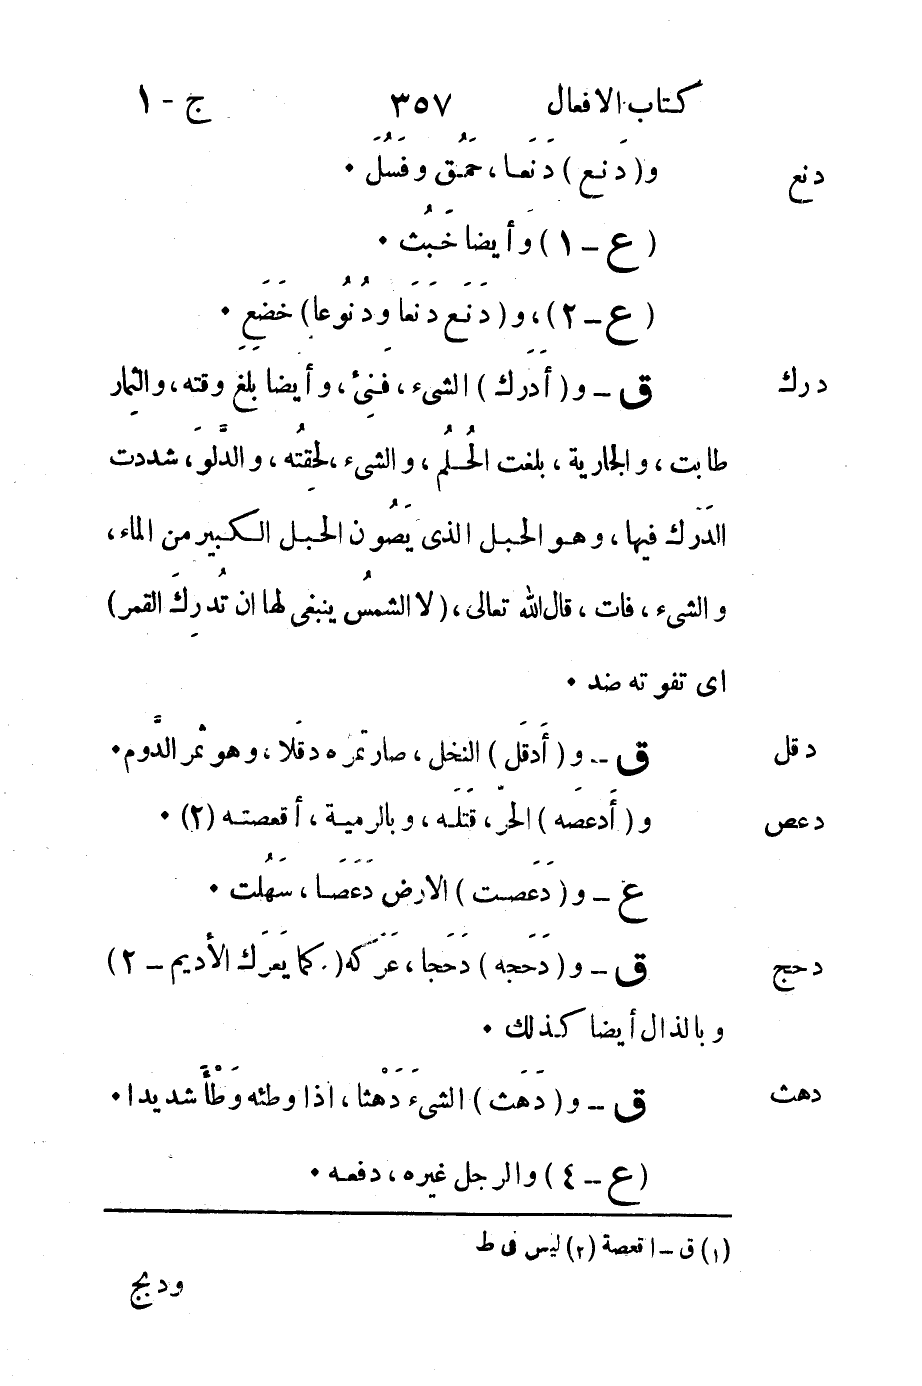 كتاب الافعال ٣٥٧ ج - ١
دنع و( دَنِع ) دَنَعا ، حَمُق وفَسُلَ .
( ع - ١ ) وَأيضا خَبُث .
( ع - ٢ ) ، و( دَنَع دَنَعا ودُنُوعا) خَضَع .
درك ق - و( أَدَرك ) الشىء ، فنِىَ ، وأيضا بلغ وقته ، والثمار
طابت ، والجارية ، بلغت الحُلُم ، والشىء ، لحِقتُه ، والدَّلوَ ، شددت
الدَرَك فيها ، وهو الحبل الذى يَصُون الحبل الكبير من الماء ،
والشىء ، فات ، قال الله تعالى ، ( لا الشمسُ ينبغى لها ان تُدرِكَ القمر)
اى تفوته ضد .
دقل ق - و( أَدقل ) النخل ، صار تمرُه دقَلا ، وهو تمر الدَّوم .
دعص و( أَدعصَه ) الحرّ ، قتَلَه ، وبالرمية ، أقعصته (٢) .
ع - و( دَعَصت ) الارض دَعَصَا ، سَهُلت .
دحج ق - و( دَحَجه ) دَحَجا ، عَرَكه ( كما يَعَرَك الأديم - ٢ )
وبالذال أيضا كذلك .
دهث ق - و( دَهَث ) الشىءَ دَهْثا ، اذا وطئه وَطْأً شديدا .
( ع - ٤ ) والرجل غيره ، دفعه .
(١) ق - اقعصة (٢) ليس فى ط
ودبج